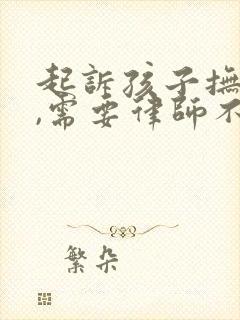 起訴孩子撫
,需要律師不
繁朵